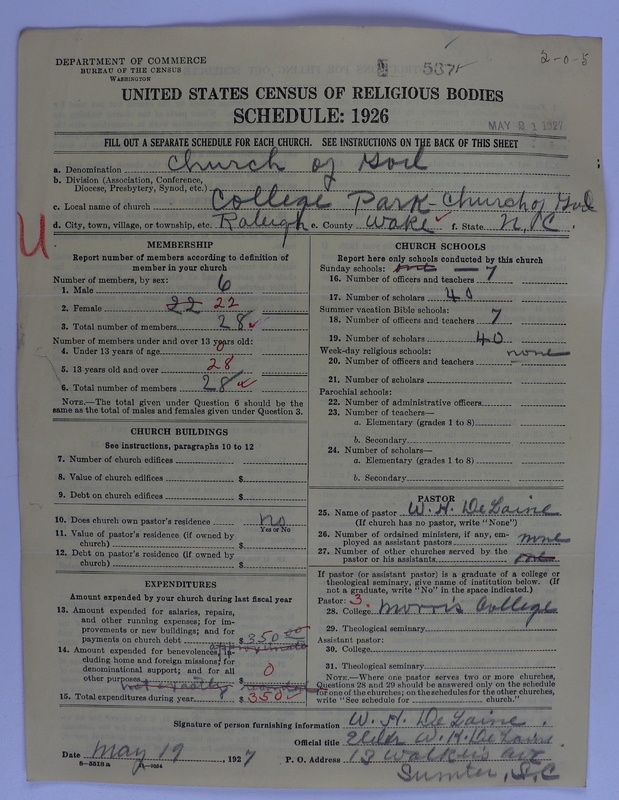 DEPARTMENT OF COMMERCE
BUREAU OF THE CENSUS
WASHINGTON
537
2-0-5
UNITED STATES CENSUS OF RELIGIOUS BODIES
SCHEDULE: 1926
MAY 21 1927
FILL OUT A SEPARATE SCHEDULE FOR EACH CHURCH. SEE INSTRUCTIONS ON THE BACK OF THIS SHEET
a. Denomination Church of God
b. Division (Association, Conference,
Diocese, Presbytery, Synod, etc.)
c. Local name of church College Park-Church of God
d. City, town, village, or township, etc. Raleigh e. County Wake f. State N.C.
MEMBERSHIP
Report number of members according to definition of
member in your church
Number of members, by sex:
1. Male 6
2. Female 22 22
3. Total number of members 28
Number of members under and over 13 years old:
4. Under 13 years of age 0
5. 13 years old and over 28
6. Total number of members 28
NOTE.—The total given under Question 6 should be the
same as the total of males and females given under Question 3.
CHURCH BUILDINGS
See instructions, paragraphs 10 to 12
7. Number of church edifices
8. Value of church edifices $
9. Debt on church edifices $
10. Does church own pastor's residence no
Yes or No
11. Value of pastor's residence (if owned by
church) $
12. Debt on pastor's residence (if owned by
church) $
EXPENDITURES
Amount expended by your church during last fiscal year
13. Amount expended for salaries, repairs,
and other running expenses; for im-
provements or new buildings; and for
payments on church debt $350 00
14. Amount expended for benevolences, in-
cluding home and foreign missions; for
denominational support; and for all
other purposes 0
not exactly
15. Total expenditures during year $350
CHURCH SCHOOLS
Report here only schools conducted by this church
Sunday schools:
16. Number of officers and teachers 7
17. Number of scholars 40
Summer vacation Bible schools:
18. Number of officers and teachers 7
19. Number of scholars 40
Week-day religious schools: none
20. Number of officers and teachers
21. Number of scholars
Parochial schools:
22. Number of administrative officers
23. Number of teachers—
a. Elementary (grades 1 to 8)
b. Secondary
24. Number of scholars—
a. Elementary (grades 1 to 8)
b. Secondary
PASTOR
25. Name of pastor W. H. DeLaine
(If church has no pastor, write "None")
26. Number of ordained ministers, if any, em-
ployed as assistant pastors none
27. Number of other churches served by the
pastor or his assistants
If pastor (or assistant pastor) is a graduate of a college or
theological seminary, give name of institution below. (If
not a graduate, write "No" in the space indicated.)
Pastor: 3.
28. College Morris College
29. Theological seminary
Assistant pastor:
30. College
31. Theological seminary
NOTE.—Where one pastor serves two or more churches,
Questions 28 and 29 should be answered only on the schedule
for one of the churches; on the schedules for the other churches,
write "See schedule for church."
Signature of person furnishing information W. H. DeLaine.
Official title Elder W. H. DeLaine.
Date May 19, 1927 P. O. Address 13 Walkers ave
8-5818a
Sumter, S.C